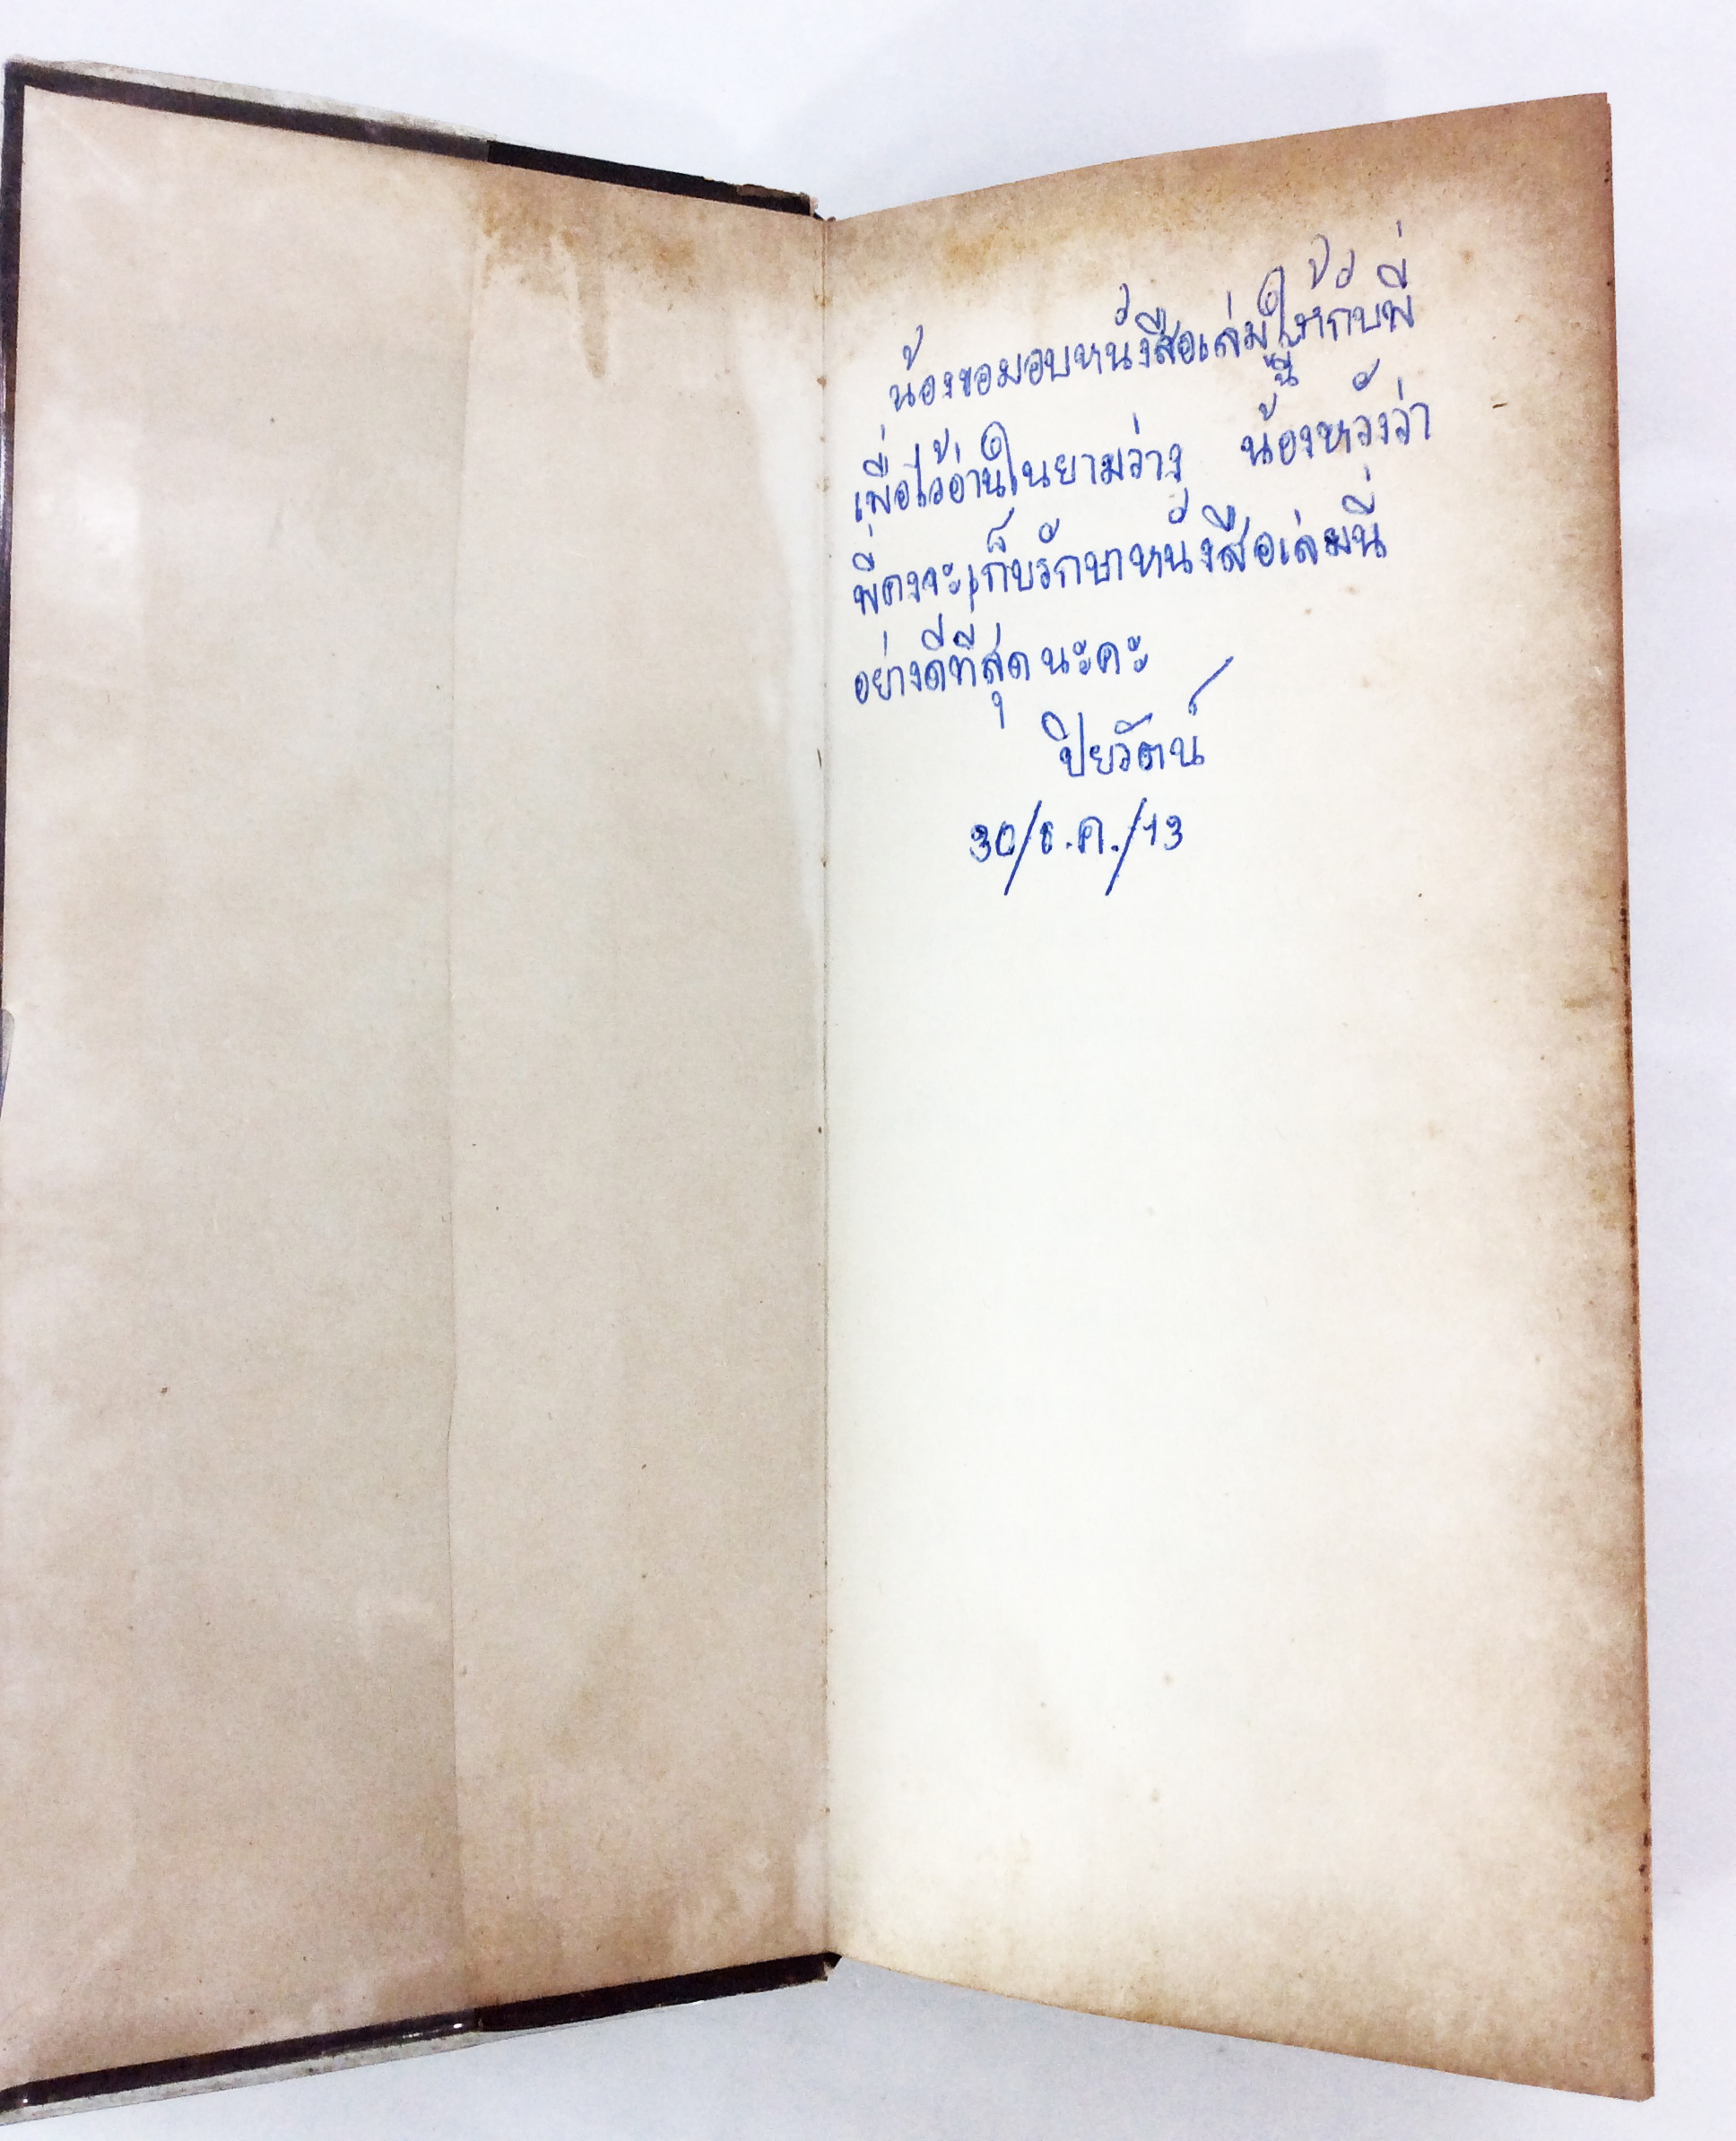 น้องขอมอบหนังสือเล่มนี้ให้กับพี่
เพื่อไว้อ่านในยามว่าง น้องหวังว่า
พี่คงจะเก็บรักษาหนังสือเล่มนี้
อย่างดีที่สุดนะคะ
ปิยรัตน์
30/ธ.ค./13